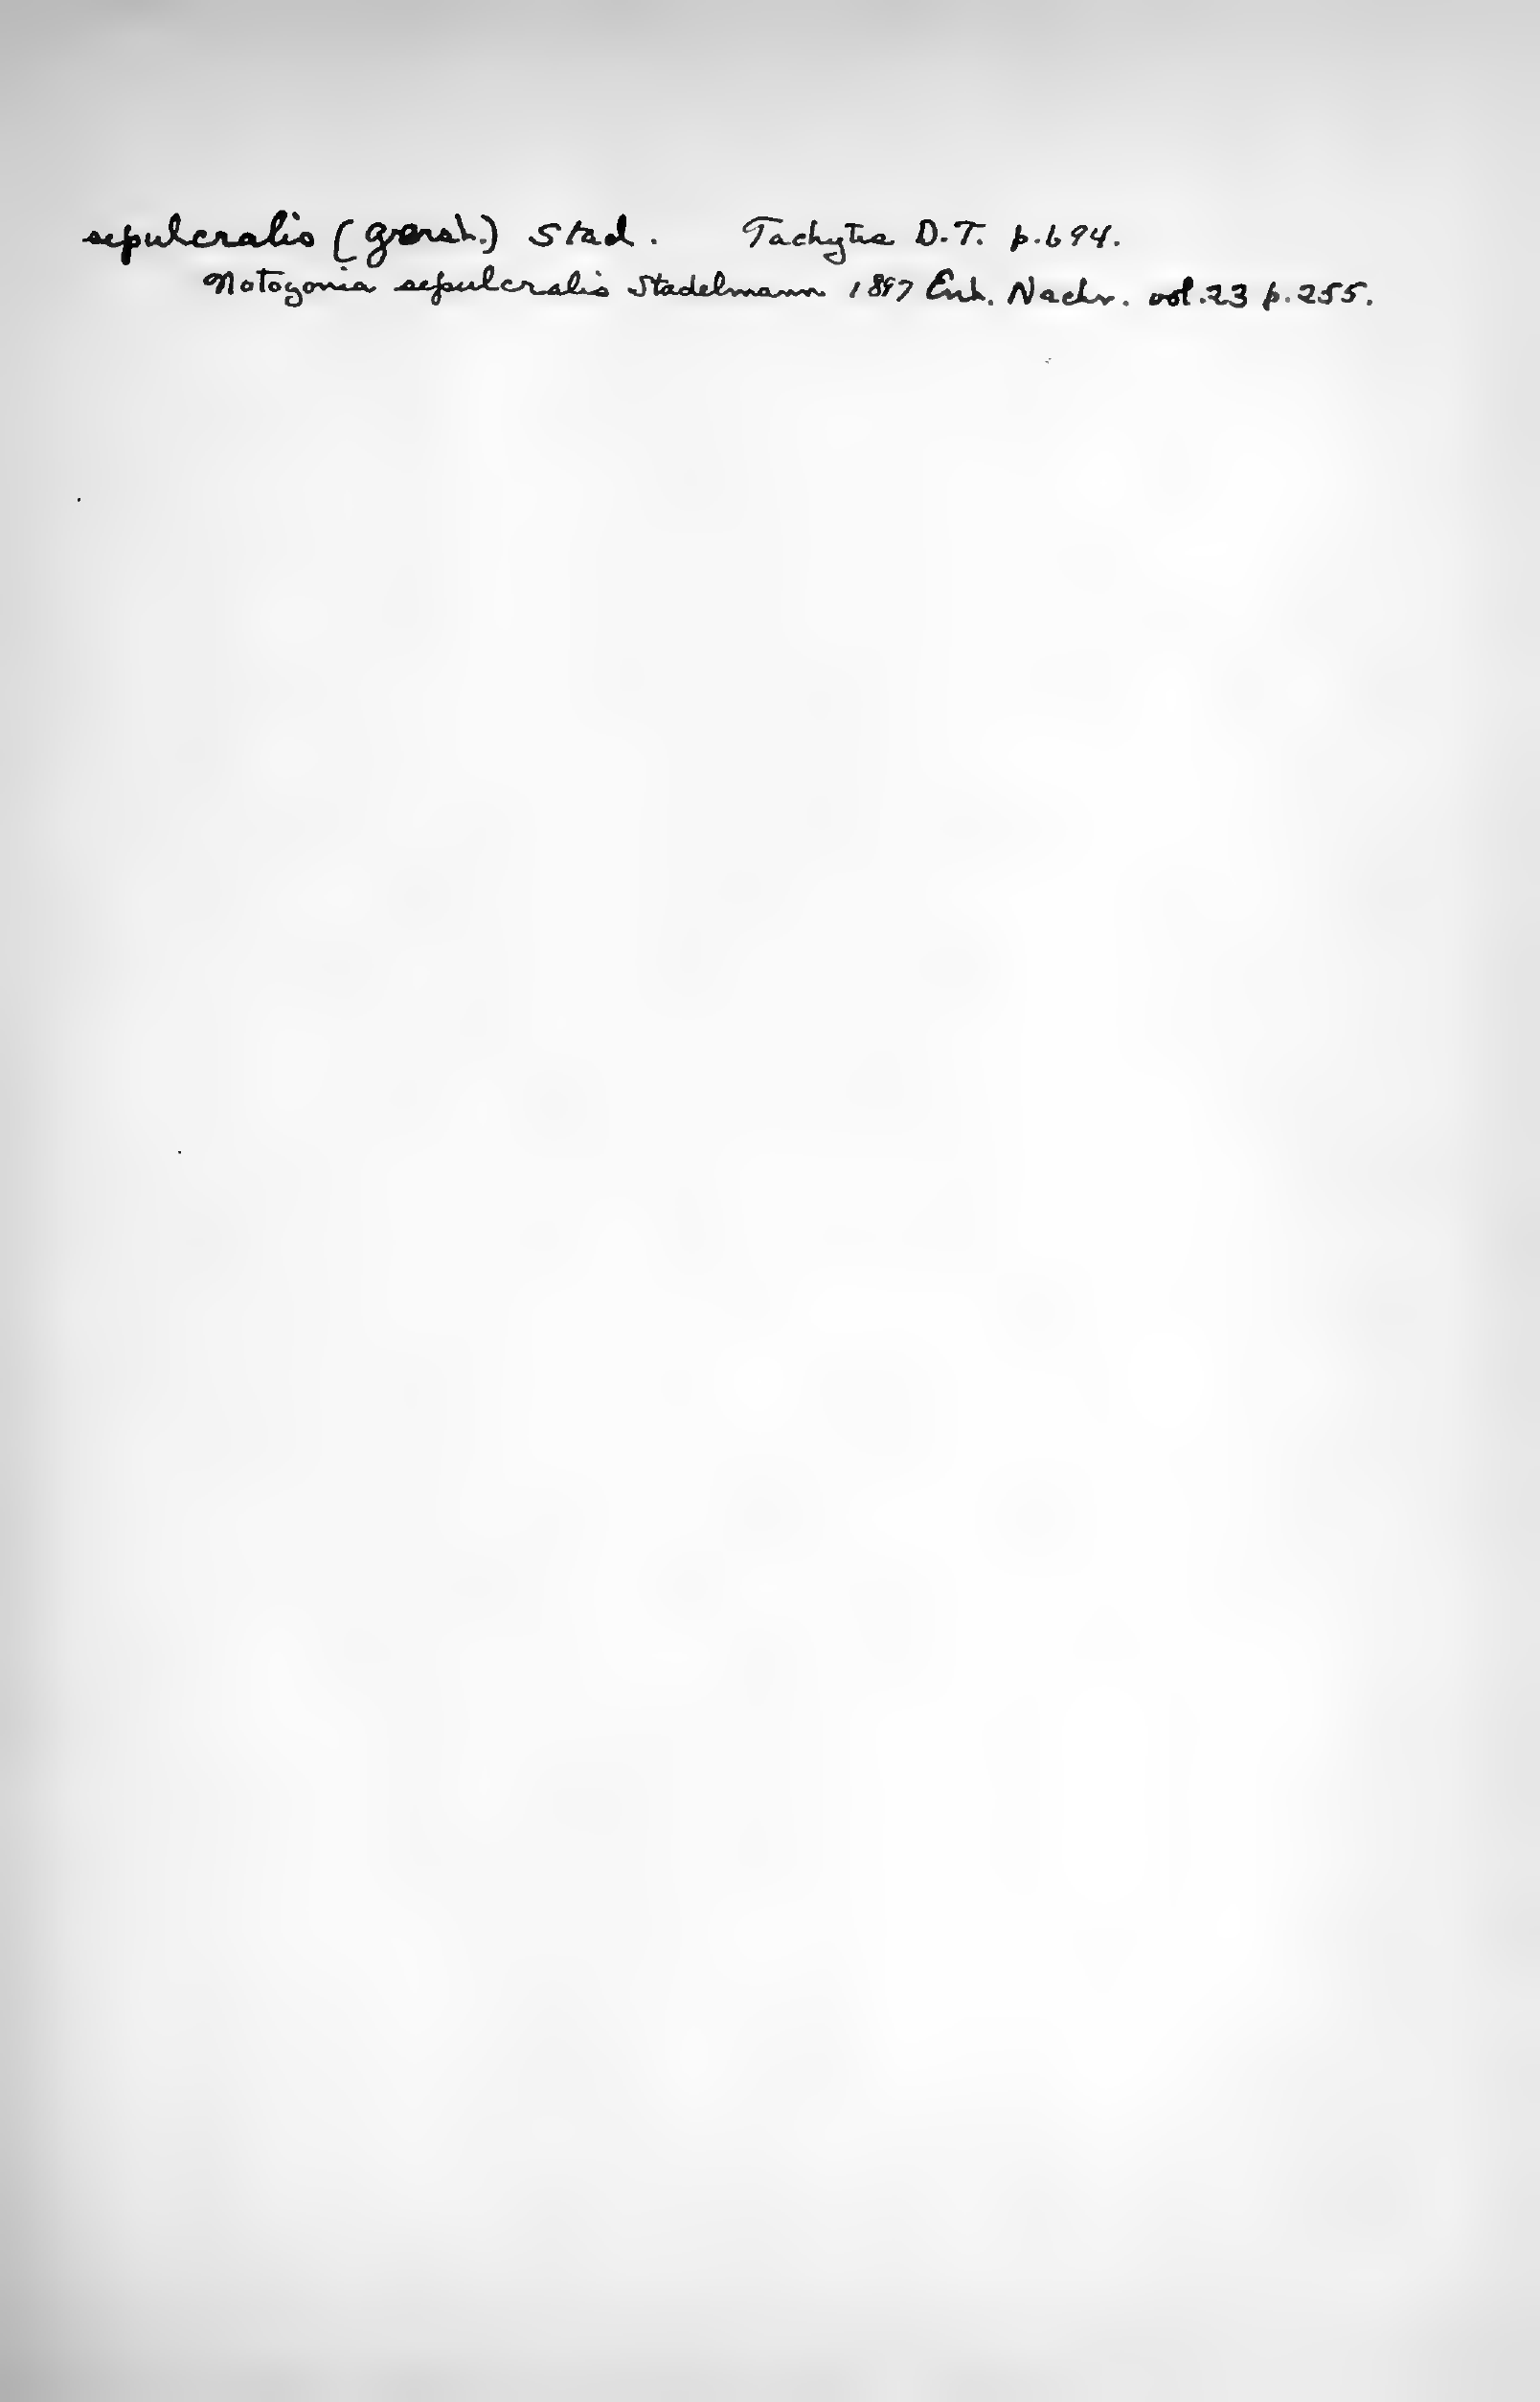 sepulcralis (Gerst.) Stad. Tachytes D.T. p.694.
Notogonia sepulcralis Stadelmann 1897 Ent. Nachr. vol.23 p.255.